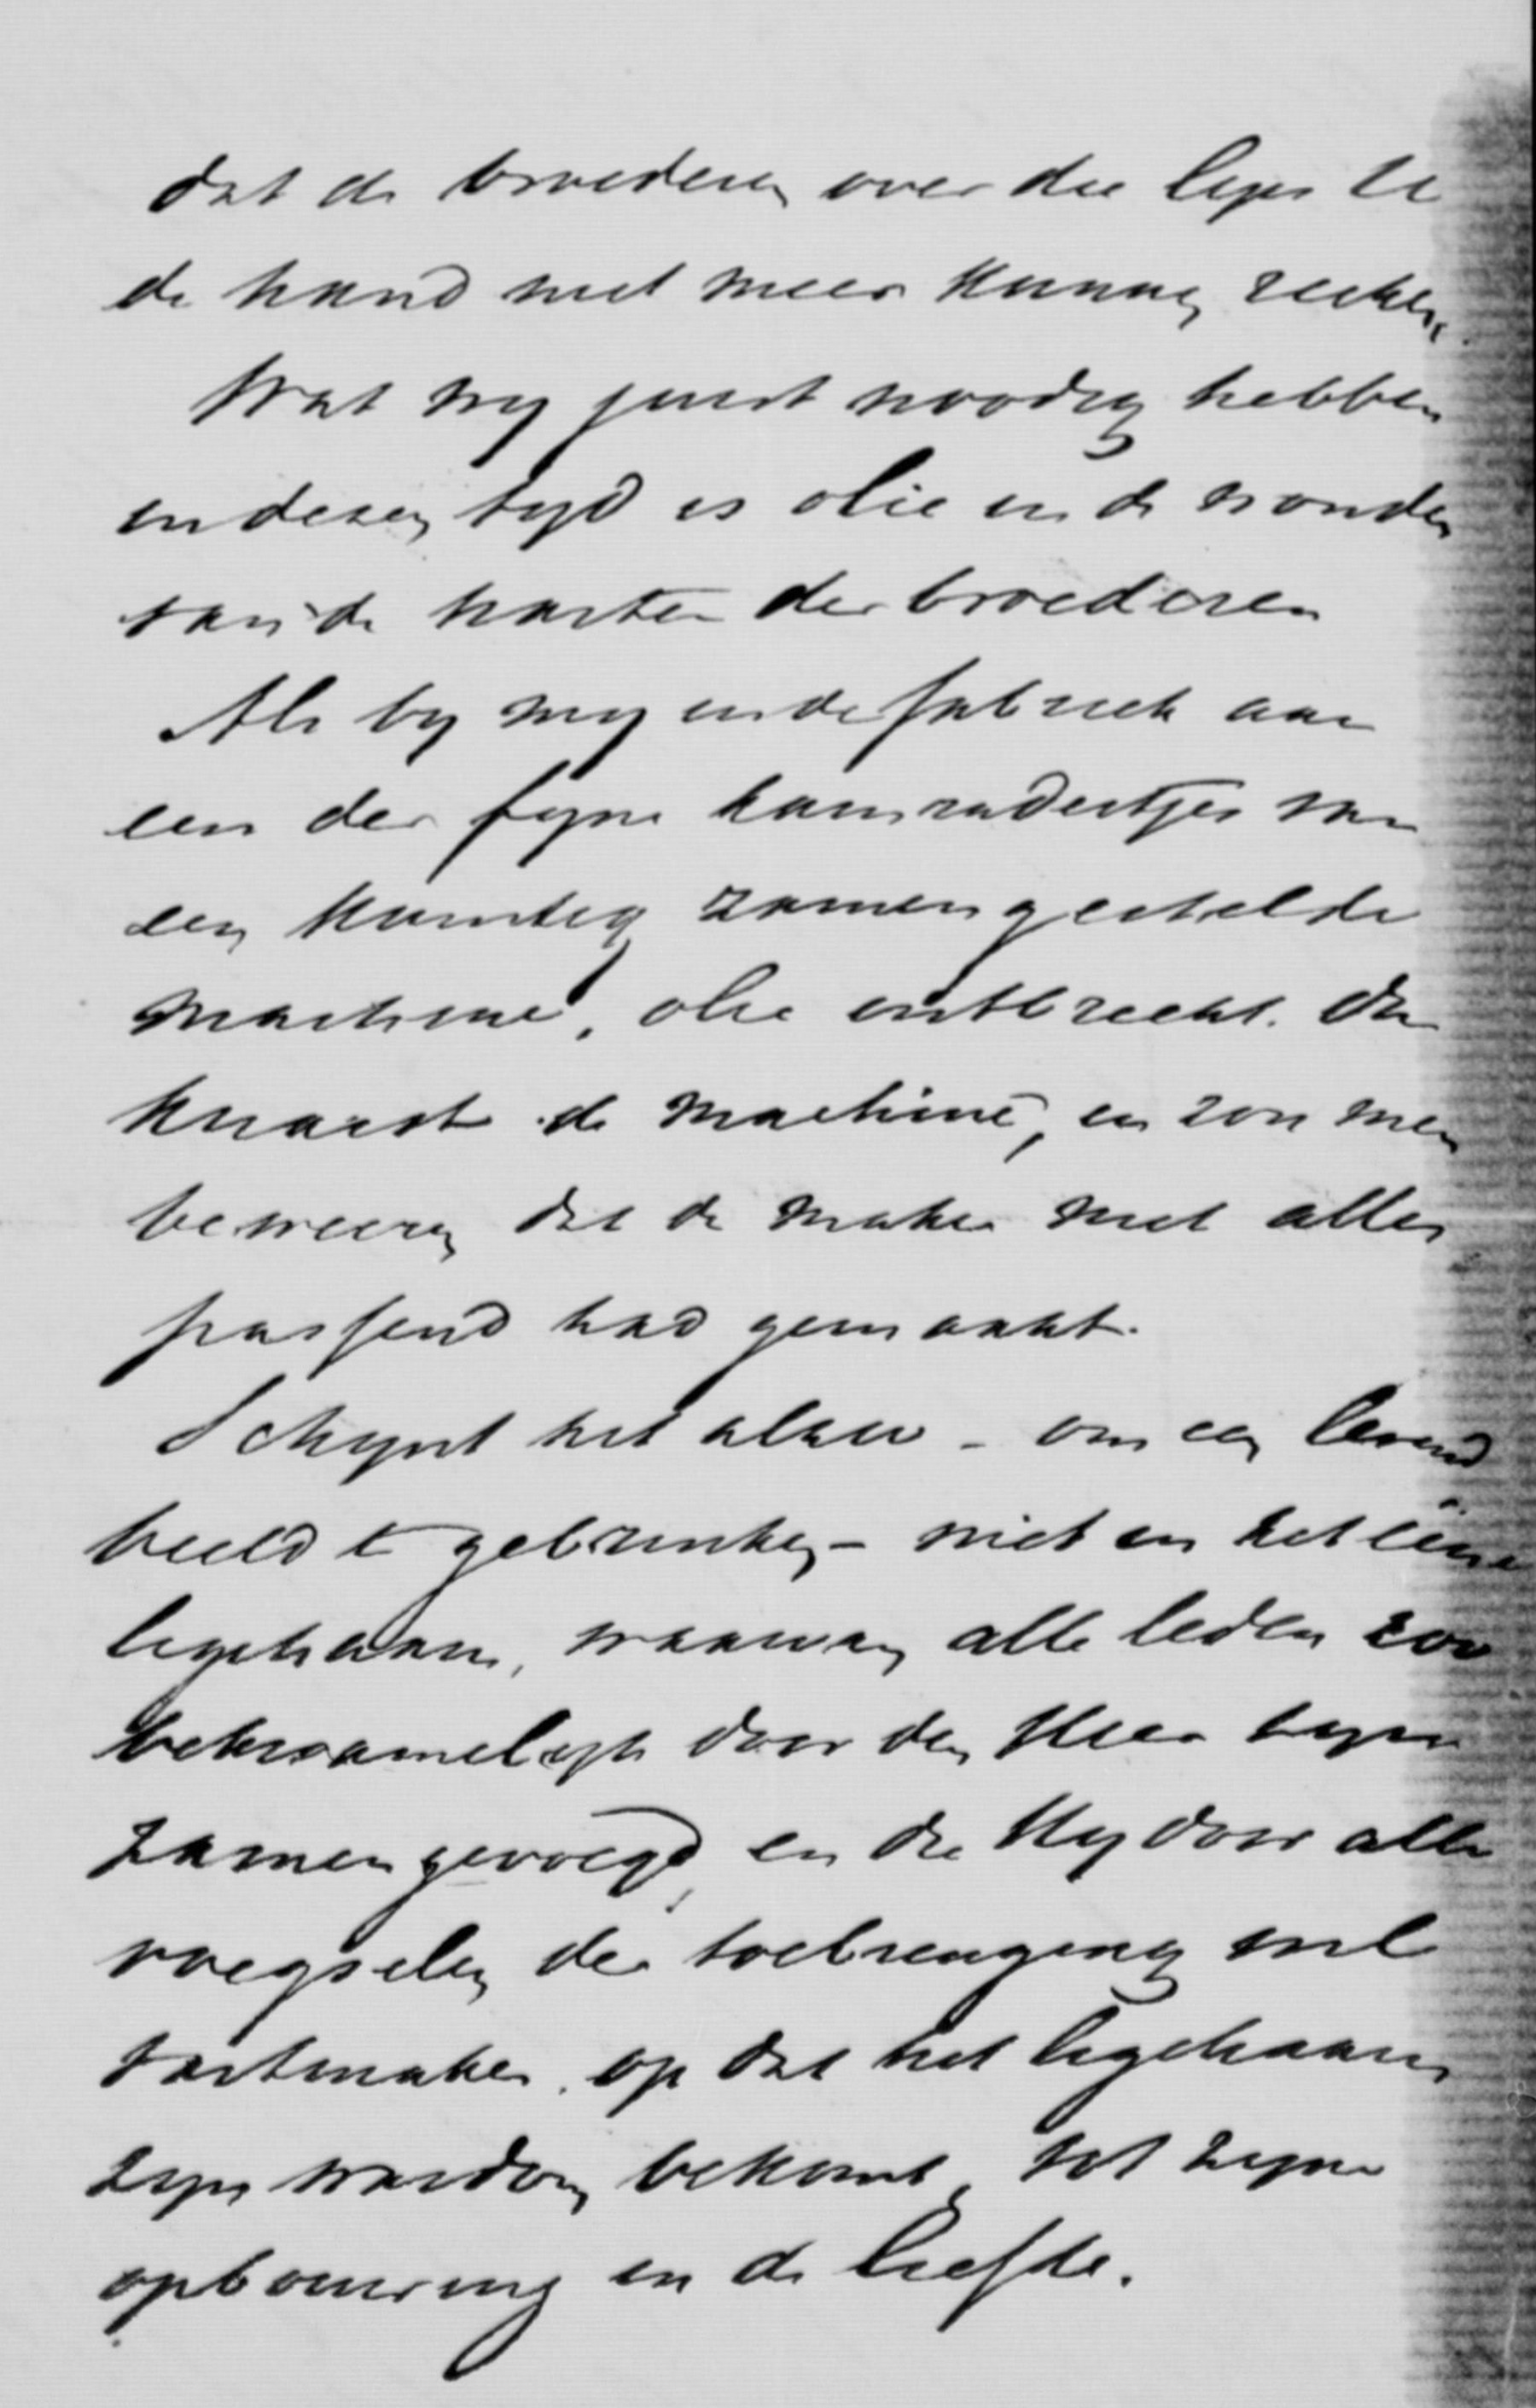 dat de broederen over die lyn el
de hand niet meer kunnen reiken.
Wat wy juist noodig hebben
in dezen tyd is olie in de wonden
van de harten der broederen
Als by my in de fabriek aan
een der fyne kamradertjes van
een kunstig zamengestelde
machine, olie ontbreekt. dan
knarst de machine, en zou men
beweeren dat de maker niet alles
passend had gemaakt.
Schynt het alzoo - om een levend
beeld te gebruiken - niet in het ééne
ligchaam, waarvan alle leden zoo
bekwamelyk door den Heer byeen
zamengevoegd, en die Hy door alle
voegselen der toebrenging wil
vastmaken. op dat het ligchaam
zyn wasdom bekomt, tot zyne
opbouwing in de liefde.